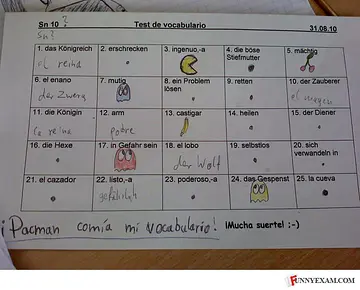 Sn 10 ? Test de vocabulario 31.08.10
Sn?
1. das Königreich 2. erschrecken 3. ingenuo,-a 4. die böse Stiefmutter 5. mächtig
el reina
6. el enano 7. mutig 8. ein Problem lösen 9. retten 10. der Zauberer
der Zwerg el magen
11. die Königin 12. arm 13. castigar 14. heilen 15. der Diener
la reina pobre
16. die Hexe 17. in Gefahr sein 18. el lobo 19. selbstlos 20. sich verwandeln in
der Wolf
21. el cazador 22. listo,-a 23. poderoso,-a 24. das Gespenst 25. la cueva
gefährlich
¡Pacman comía mi vocabulario! ¡Mucha suerte! :-)
FUNNYEXAM.COM